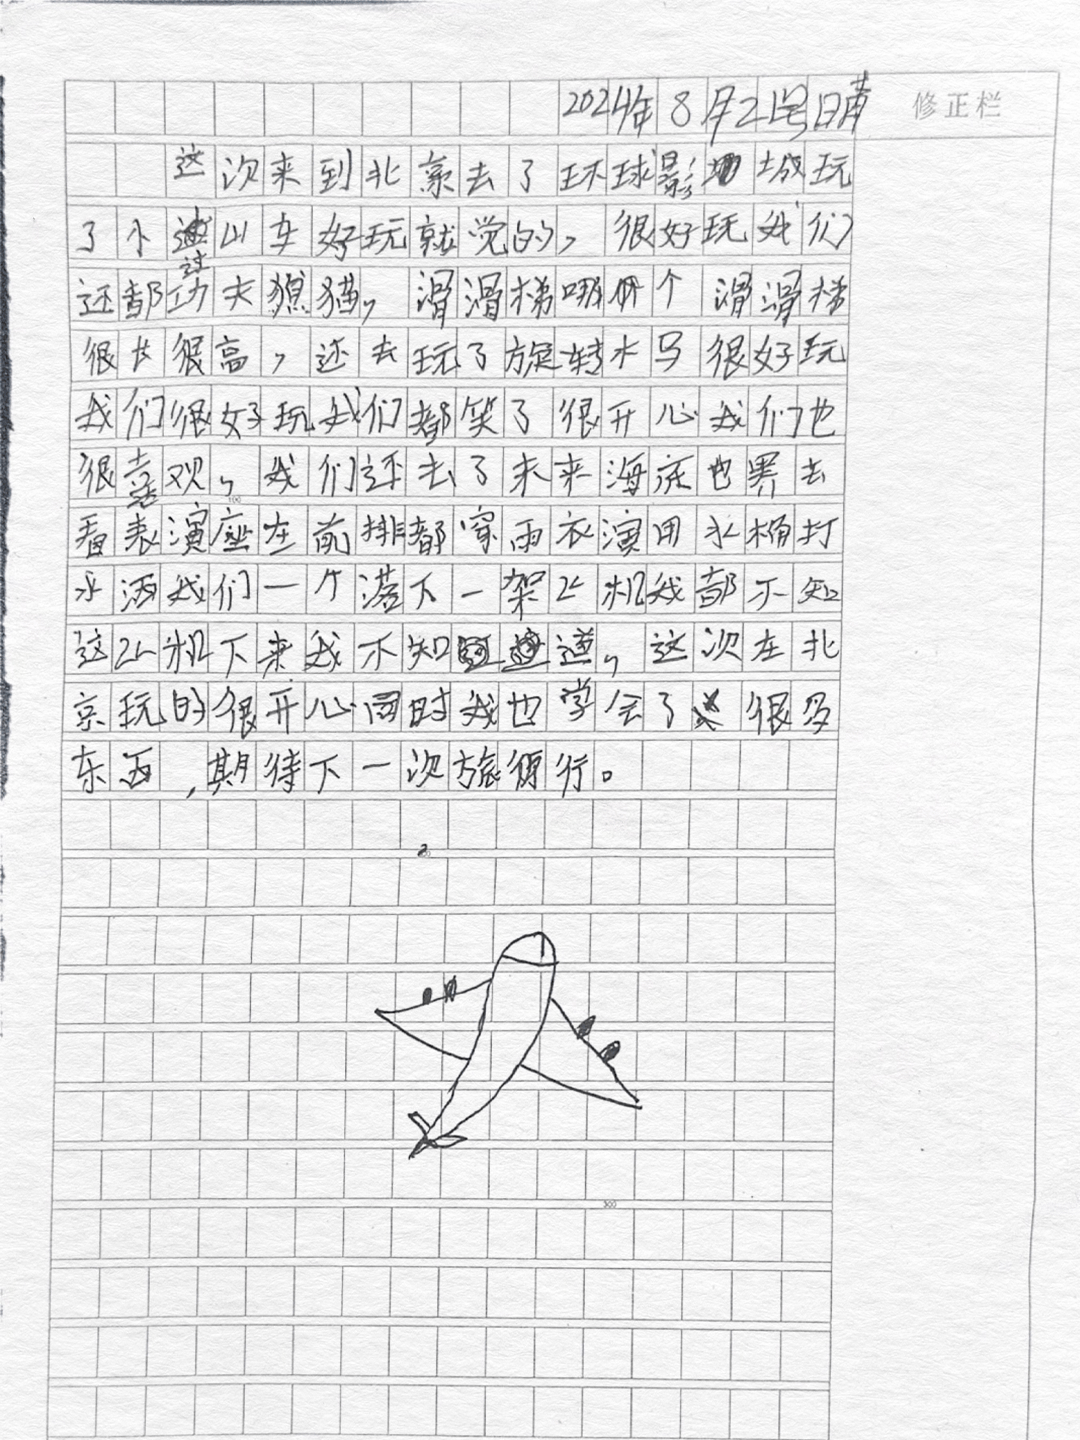 2024年8月21号晴
修正栏
这次来到北京去了环球影城玩
了个过山车好玩就觉的，很好玩我们
还都功夫熊猫，滑滑梯哪个滑滑梯
很长很高，还去玩了旋转木马很好玩
我们很好玩我们都笑了很开心我们也
很喜欢，我们还去了未来海底世界去
看表演座在前排都穿雨衣演用水桶打
水洒我们一个落下一架飞机我都不知
这飞机下来我不知道，这次在北
京玩的很开心同时我也学会了很多
东西，期待下一次旅行。
300